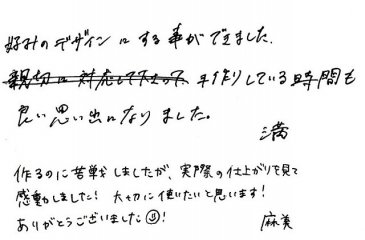 好みのデザインにする事ができました。
親切に対応して下さって、手作りしている時間も
良い思い出になりました。
満
作るのに苦戦しましたが、実際の仕上がりを見て
感動しました! 大切に使いたいと思います!
ありがとうございました☺!
麻美